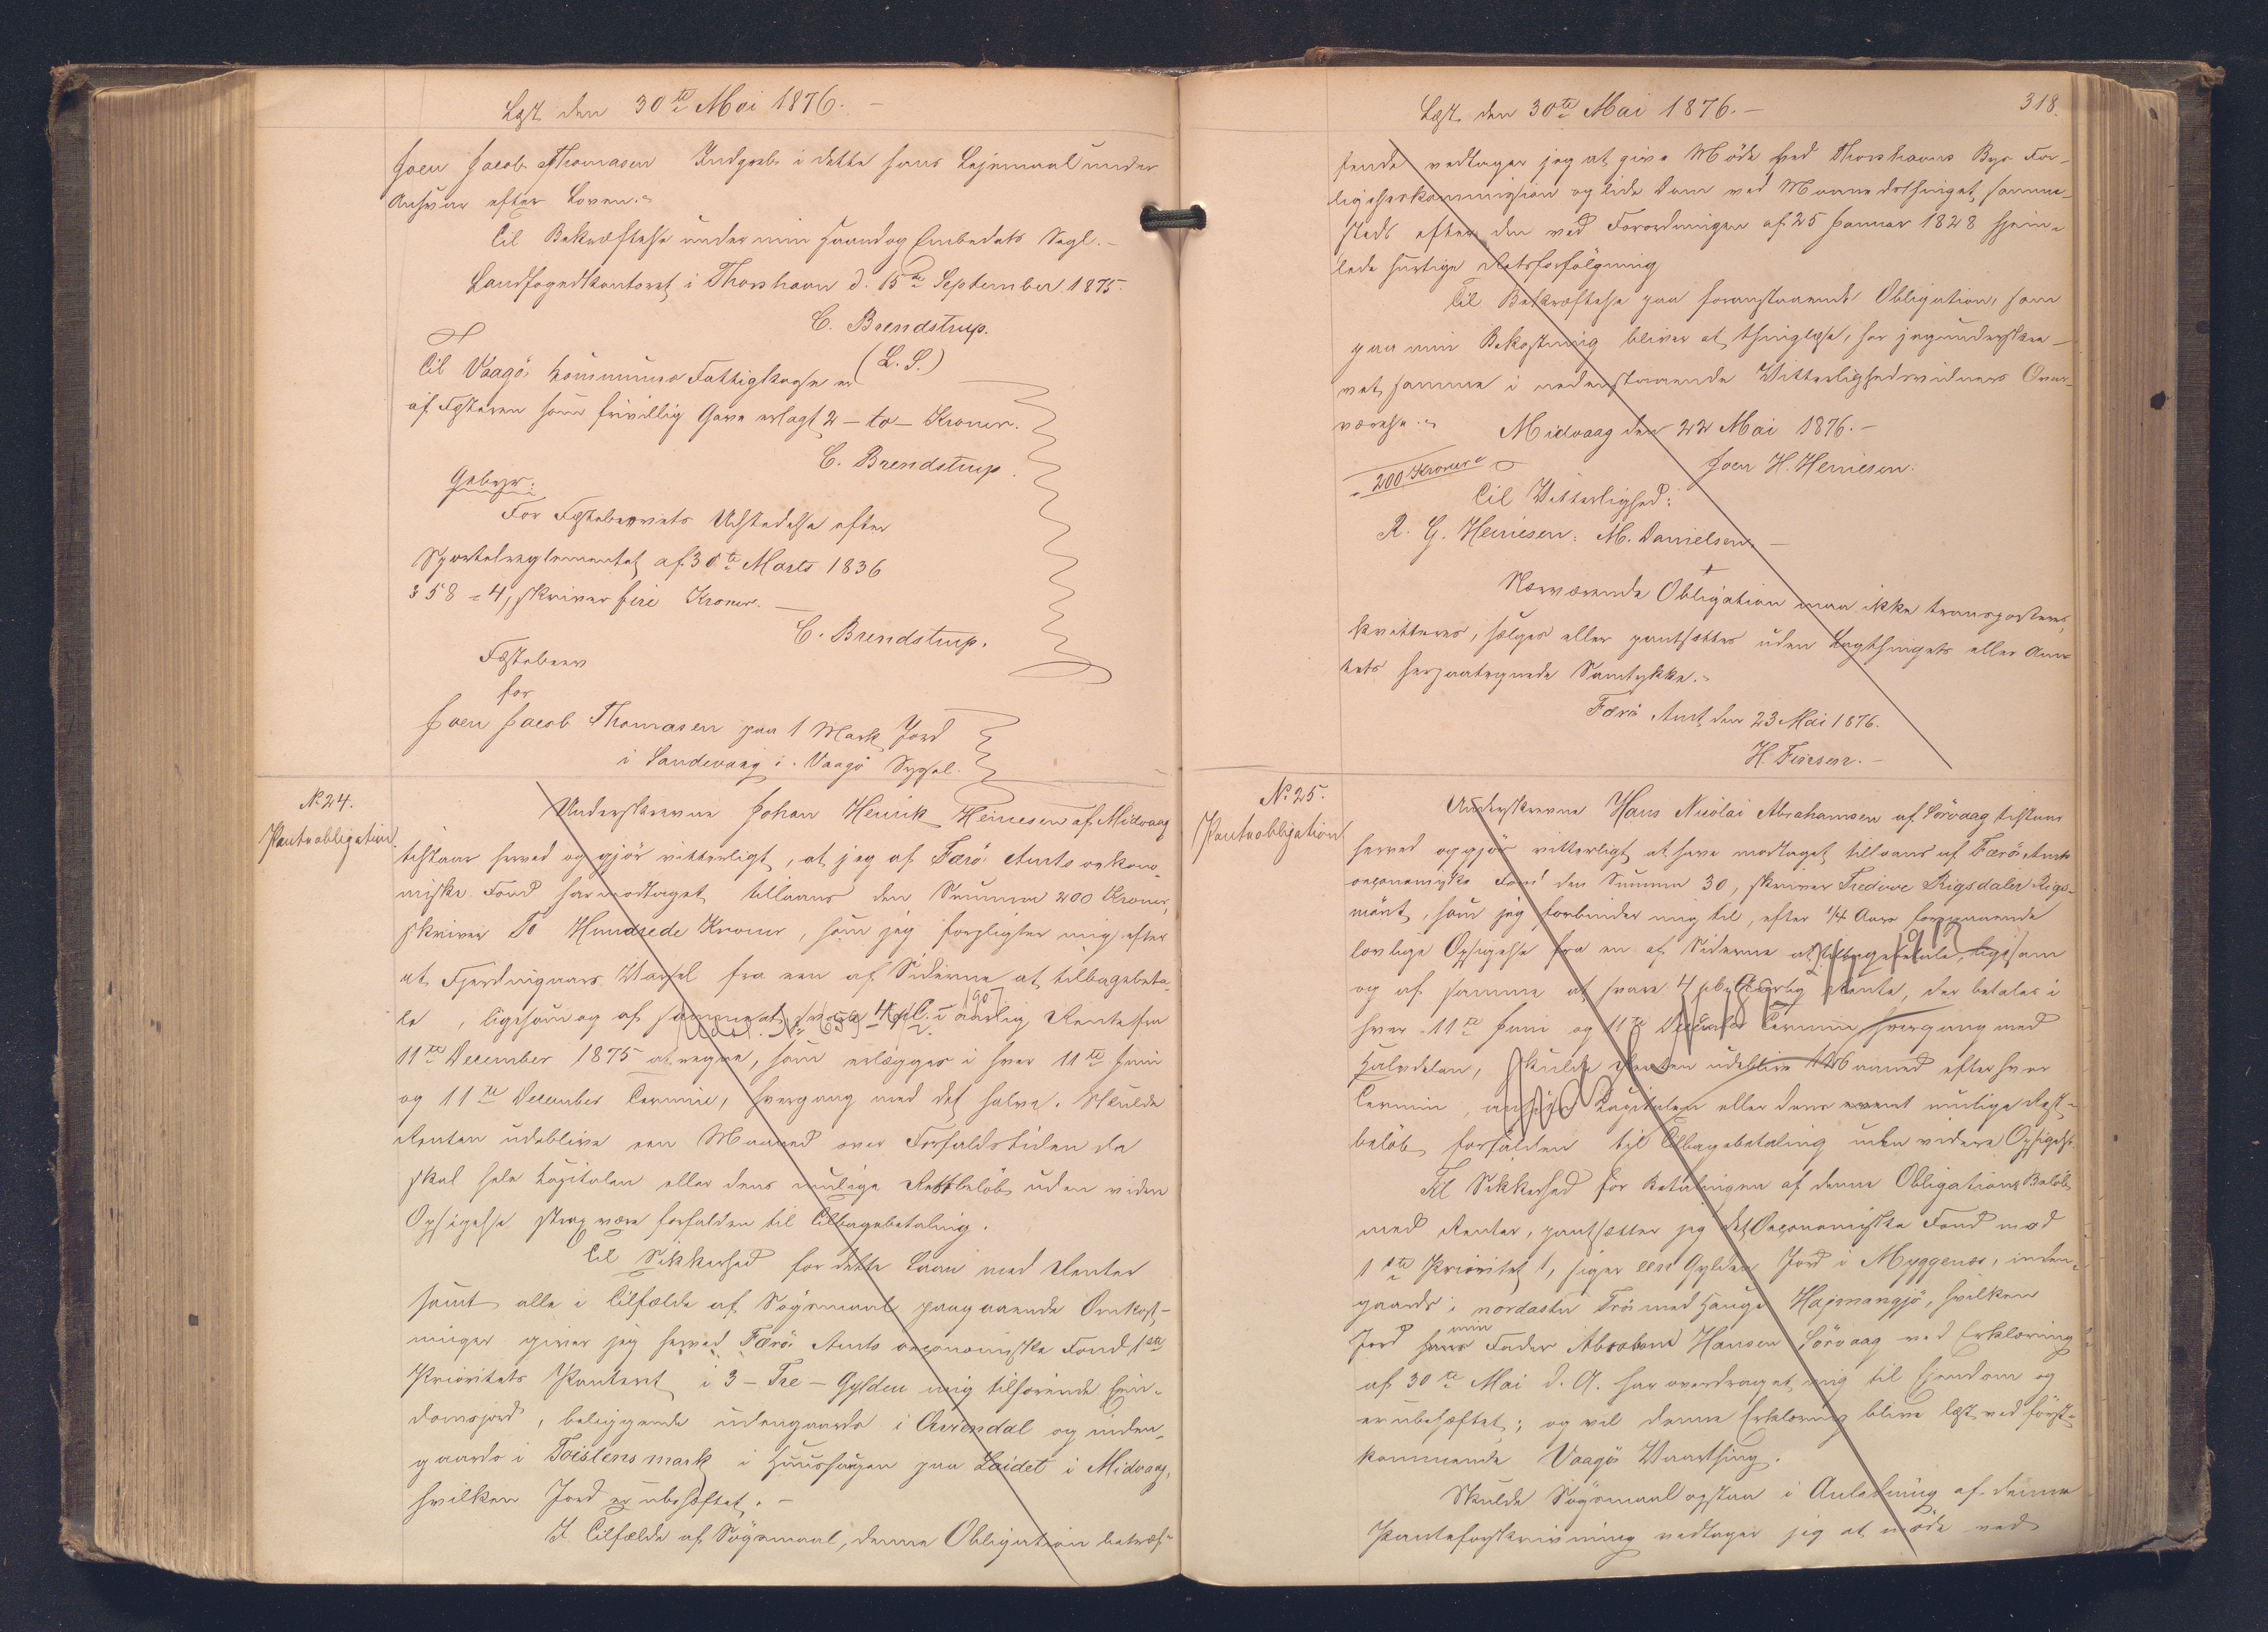 Læst den 30te Mai 1876. –
Joen Jacob Thomasen Indgreb i dette hans Lejemaal under
Ansvar efter Loven. –
Til Bekræftelse under min Haand og Embedets Segl. –
Landfogedkontoret i Thorshavn d. 15de September 1875.
C. Brendstrup.
(L. S.)
Til Vaagö Kommunes Fattigkasse er
af Fæsteren som frivillig Gave erlagt 2 – to – Kroner.
C. Brendstrup.
Gebyr:
For Fæstebrevets Udstedelse efter
Sportelreglementet af 30te Marts 1836
§ 58 = 4, skriver fire Kroner. –
C. Brendstrup.
Fæstebrev
for
Joen Jacob Thomasen paa 1 Mark Jord
i Sandevaag i Vaagö Syssel.
No 24.
Panteobligation.
Underskrevne Johan Henrik Heinesen af Midvaag
tilstaar herved og gjör vitterligt, at jeg af Færö Amts oekono-
miske Fond har modtaget tillaans den Summa 200 Kroner,
skriver To Hundrede Kroner, som jeg forpligter mig efter
et Fjerdingaars Varsel fra een af Siderne at tilbagebeta-
le, ligesom og af samme at svare 4 pC. i aarlig Rente fra
1907
11te December 1875 at regne, som erlægges i hver 11te Juni
og 11te December Termin, hvergang med det halve. Skulde
Renten udeblive een Maaned over Forfaldstiden da
skal hele Kapitalen eller dens mulige Restbelöb uden viden
Opsigelse strax være forfalden til Tilbagebetaling.
Til Sikkerhed for dette Laan med Renter
samt alle i Tilfælde af Sögsmaal paagaaende Omkost-
ninger giver jeg herved Færö Amts oeconomiske Fond 1ste
Prioritets Panteret i 3 – Tre – Gylden mig tilhörende Ejen-
domsjord, beliggende udengaards i Avrendal og inden-
gaards i Toistensmark i Huushaugen paa Laidet i Midvaag,
hvilken Jord er ubehæftet. –
I Tilfælde af Sögsmaal, denne Obligation betræf-
Læst den 30te Mai 1876. –
318.
fende vedtager jeg at give Möde ved Thorshavns Byes For-
ligelseskommission og lide Dom ved Maanedsthinget samme-
steds efter den ved Forordningen af 25 Januar 1828 hjem-
lede hurtige Retsforfölgning
Til Bekræftelse paa foranstaaende Obligation, som
paa min Bekostning bliver at thinglæse, har jeg underskre-
vet samme i nedenstaaende Vitterlighedsvidners Over-
værelse. –
Midvaag den 22 Mai 1876. –
= 200 Kroner =
Joen H. Heinesen.
Til Vitterlighed:
R. G. Heinesen. M. Danielsen. –
Nærværende Obligation maa ikke transporteres,
kvitteres, sælges eller pantsættes uden Lagthingets eller Am-
tets herpaategnede Samtykke. –
Færö Amt den 23 Mai 1876.
H. Finsen. –
No 25.
Panteobligation.
Underskrevne Hans Nicolai Abrahamsen af Sörvaag tilstaar
herved og gjör vitterligt at have modtaget tillaans af Færö Amts
oeconomiske Fond den Summa 30, skriver Tredive Rigsdaler Rigs-
mönt, som jeg forbinder mig til, efter 1/4 Aars forgaaende
lovlige Opsigelse fra en af Siderne at tilbagebetale, ligesom
og af samme at svare 4 pC. aarlig Rente, der betales i
hver 11te Juni og 11te December Termin hvergang med
Halvdelen, skulde Renten udeblive 1 Maaned efter hver
Termin, ansees Kapitalen eller dens mulige Rest-
belöb forfalden til Tilbagebetaling uden videre Opsigelse.
Til Sikkerhed for Betalingen af denne Obligations Belöb
med Renter, pantsætter jeg det Oeconomiske Fond med
1ste Prioritet 1, siger een Gylden Jord i Myggenæs, inden-
gaards i nordaster Trö med Hauge Hajmangjö, hvilken
min
Jord hans Fader Abraham Hansen Sörvaag ved Erklæring
af 30te Mai d. A. har overdraget mig til Ejendom og
er ubehæftet; og vil denne Erklæring blive læst ved först-
kommende Vaagö Vaarthing.
Skulde Sögsmaal opstaa i Anledning af denne
Panteforskrivning vedtager jeg at möde ved